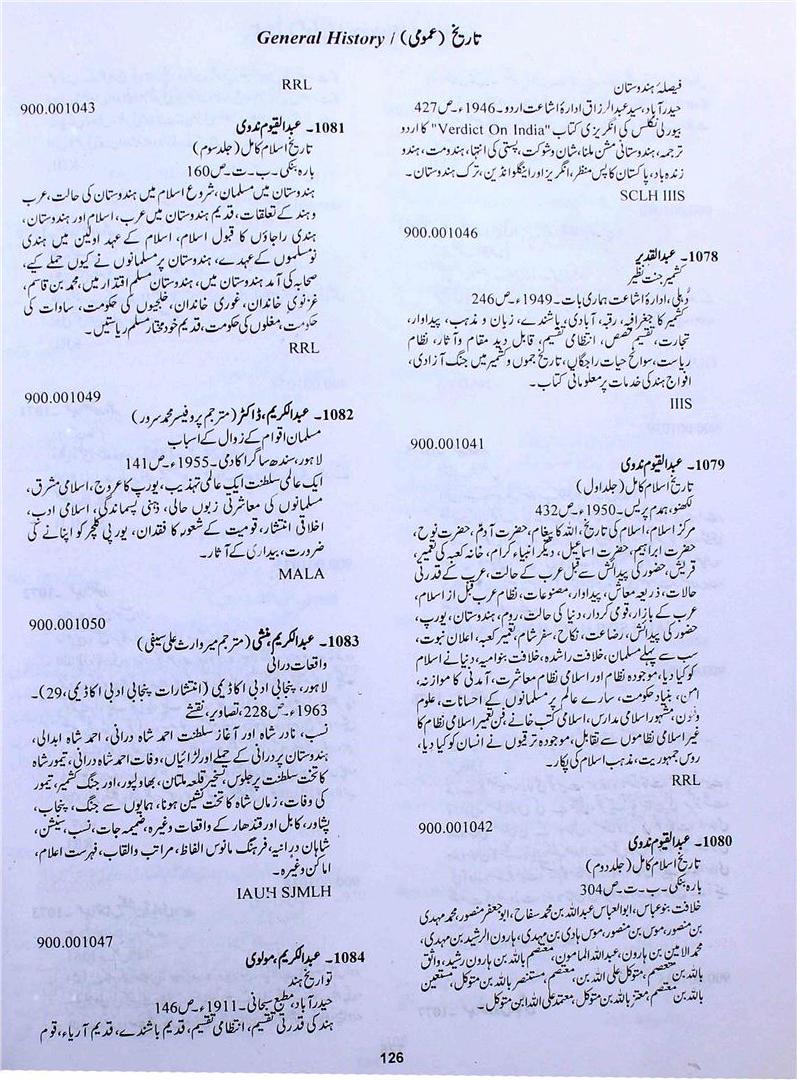 General History / تاریخ (عمومی)
فیصلۂ ہندوستان
حیدرآباد، سید عبدالرزاق ادارۂ اشاعت اردو۔ 1946ء۔ ص427
بیورلی نکلس کی انگریزی کتاب "Verdict On India" کا اردو
ترجمہ، ہندوستانی مشن ملنا، شان و شوکت، پستی کی انتہا، ہندومت، ہندو
زندہ باد، پاکستان کا پس منظر، انگریز اور اینگلو انڈین، ترک ہندوستان۔
SCLH IIIS
900.001046
1078۔ عبدالقدیر
کشمیر جنت نظیر
دہلی، ادارۂ اشاعت ہماری بات۔ 1949ء۔ ص246
کشمیر کا جغرافیہ، رقبہ، آبادی، باشندے، زبان و مذہب، پیداوار،
تجارت، تقسیم حصص، انتظامی تقسیم، قابل دید مقام و آثار، نظام
ریاست، سوانح حیات راجگان، تاریخ جموں و کشمیر میں جنگ آزادی،
افواج ہند کی خدمات پر معلوماتی کتاب۔
IIIS
900.001041
1079۔ عبدالقیوم ندوی
تاریخ اسلام کامل (جلد اول)
لکھنؤ، ہمدم پریس۔ 1950ء۔ ص432
مرکز اسلام، اسلام کی تاریخ، اللہ کا پیغام، حضرت آدمؑ، حضرت نوح،
حضرت ابراہیم، حضرت اسماعیل، دیگر انبیاء کرام، خانہ کعبہ کی تعمیر،
قریش، حضور کی پیدائش سے قبل عرب کے حالت، عرب کے قدرتی
حالات، ذریعہ معاش، پیداوار، مصنوعات، نظام عرب قبل از اسلام،
عرب کے بازار، قومی کردار، دنیا کی حالت، روم، ہندوستان، یورپ،
حضور کی پیدائش، رضاعت، نکاح، سفر شام، تعمیر کعبہ، اعلان نبوت،
سب سے پہلے مسلمان، خلافت راشدہ، خلافت بنوامیہ، دنیا نے اسلام
کو کیا دیا، موجودہ نظام اور اسلامی نظام معاشرت، آمدنی کا موازنہ،
امن، بنیاد حکومت، سارے عالم پر مسلمانوں کے احسانات، علوم
و فنون، مشہور اسلامی مدارس، اسلامی کتب خانے، فن تعمیر اسلامی نظام کا
غیر اسلامی نظاموں سے تقابل، موجودہ ترقیوں نے انسان کو کیا دیا،
روس جمہوریت، مذہب اسلام کی پکار۔
RRL
900.001042
1080۔ عبدالقیوم ندوی
تاریخ اسلام کامل (جلد دوم)
بارہ بنکی۔ ب۔ ت۔ ص304
خلافت بنوعباس، ابوالعباس عبداللہ بن محمد سفاح، ابوجعفر منصور، محمد مہدی
بن منصور، موسیٰ بن منصور، موسیٰ ہادی بن مہدی، ہارون الرشید بن مہدی،
محمد الامین بن ہارون، عبداللہ المامون، معتصم باللہ بن ہارون رشید، واثق
باللہ بن معتصم، متوکل علی اللہ بن، معتصم، مستنصر باللہ بن متوکل، مستعین
باللہ بن معتصم، معتز باللہ بن متوکل، معتمد علی اللہ ابن متوکل۔
RRL
900.001043
1081۔ عبدالقیوم ندوی
تاریخ اسلام کامل (جلد سوم)
بارہ بنکی۔ ب۔ ت۔ ص160
ہندوستان میں مسلمان، شروع اسلام میں ہندوستان کی حالت، عرب
و ہند کے تعلقات، قدیم ہندوستان میں عرب، اسلام اور ہندوستان،
ہندی راجاؤں کا قبول اسلام، اسلام کے عہد اولین میں ہندی
نومسلموں کے عہدے، ہندوستان پر مسلمانوں نے کیوں حملے کیے،
صحابہ کی آمد ہندوستان میں، ہندوستان مسلم اقتدار میں، محمد بن قاسم،
غزنوی خاندان، غوری خاندان، خلجیوں کی حکومت، سادات کی
حکومت، مغلوں کی حکومت، قدیم خودمختار مسلم ریاستیں۔
RRL
900.001049
1082۔ عبدالکریم، ڈاکٹر (مترجم پروفیسر محمد سرور)
مسلمان اقوام کے زوال کے اسباب
لاہور، سندھ ساگر اکادمی۔ 1955ء۔ ص141
ایک عالمی سلطنت ایک عالمی تہذیب، یورپ کا عروج، اسلامی مشرق،
مسلمانوں کی معاشرتی زبوں حالی، ذہنی پسماندگی، اسلامی ادب،
اخلاقی انتشار، قومیت کے شعور کا فقدان، یورپی کلچر کو اپنانے کی
ضرورت، بیداری کے آثار۔
MALA
900.001050
1083۔ عبدالکریم، منشی (مترجم میر وارث علی سیفی)
واقعات درانی
لاہور، پنجابی ادبی اکاڈیمی (انتشارات پنجابی ادبی اکاڈیمی، 29)۔
1963ء۔ ص228، تصاویر، نقشے
نسب، نادر شاہ اور آغاز سلطنت احمد شاہ درانی، احمد شاہ ابدالی،
ہندوستان پر درانی کے حملے اور لڑائیاں، وفات احمد شاہ درانی، تیمور شاہ
کا تخت سلطنت پر جلوس، تسخیر قلعہ ملتان، بھاولپور، اور جنگ کشمیر، تیمور
کی وفات، زماں شاہ کا تخت نشین ہونا، ہمایوں سے جنگ، پنجاب،
پشاور، کابل اور قندھار کے واقعات وغیرہ، ضمیمہ جات، نسب، سینین،
شاہان درانیہ، فرہنگ مانوس الفاظ، مراتب والقاب، فہرست اعلام،
اماکن وغیرہ۔
IAUH SJMLH
900.001047
1084۔ عبدالکریم، مولوی
تواریخ ہند
حیدرآباد، مطبع سبحانی۔ 1911ء۔ ص146
ہند کی قدرتی تقسیم، انتظامی تقسیم، قدیم باشندے، قدیم آریاء، قوم
126